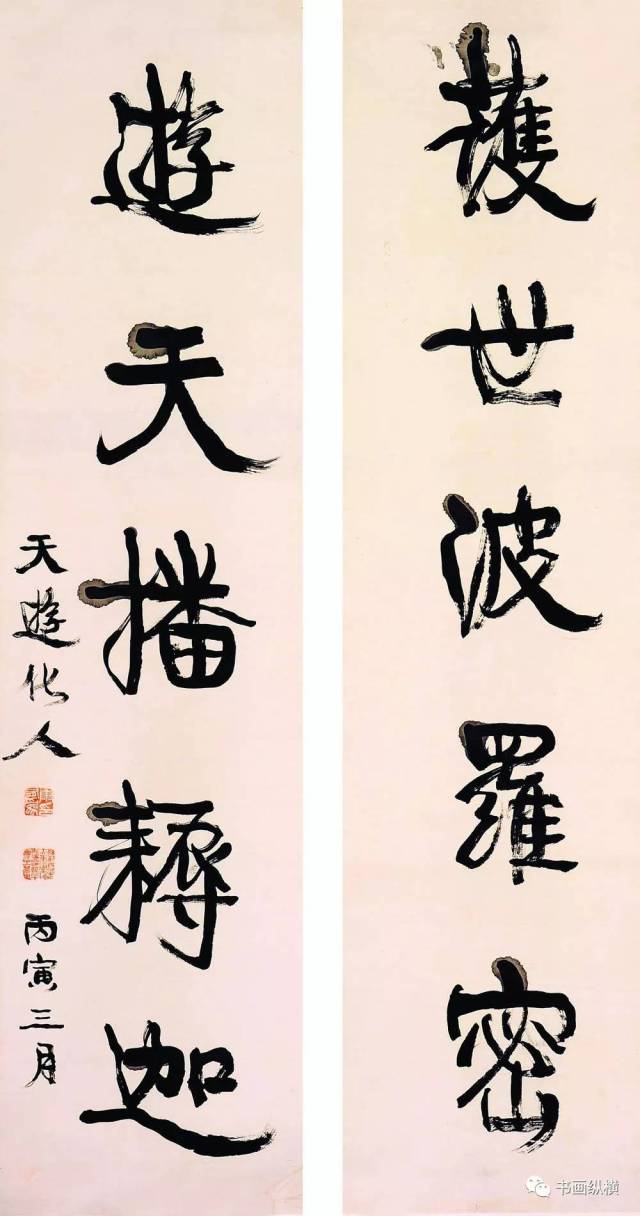 護世波羅密
遊天播耨迦
天遊化人
丙寅三月
书画纵横